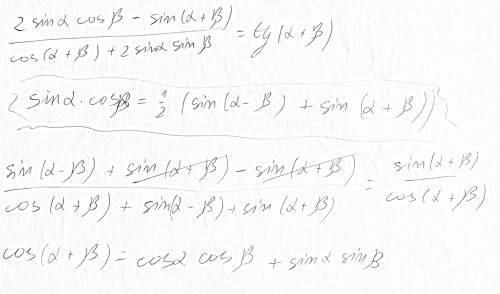 (2 sinα cosβ − sin(α+β)) / (cos(α+β) + 2 sinα sinβ) = tg(α+β)
sinα · cosβ = 1/2 (sin(α−β) + sin(α+β))
(sin(α−β) + sin(α+β) − sin(α+β)) / (cos(α+β) + sin(α−β) + sin(α+β)) = sin(α+β) / cos(α+β)
cos(α+β) = cosα cosβ + sinα sinβ